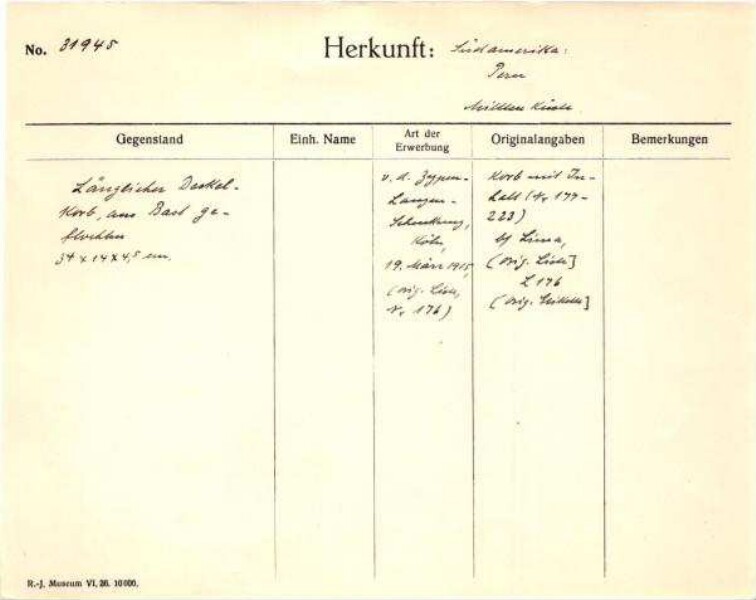 No. 31945
Herkunft: Südamerika:
Peru
Mittlere Küste
Gegenstand
Länglicher Deckel-
korb, aus Bast ge-
flochten
34 x 14 x 4,5 cm.
Einh. Name
Art der
Erwerbung
v. d. Zypen-
Langen-
Schenkung,
Köln,
19. März 1915,
(orig. Liste,
Nr. 176)
Originalangaben
Korb mit In-
halt (Nr. 177-
223)
bei Lima,
(orig. Liste]
L 176
(orig. Etikette]
Bemerkungen
R.-J. Museum VI. 26. 10000.